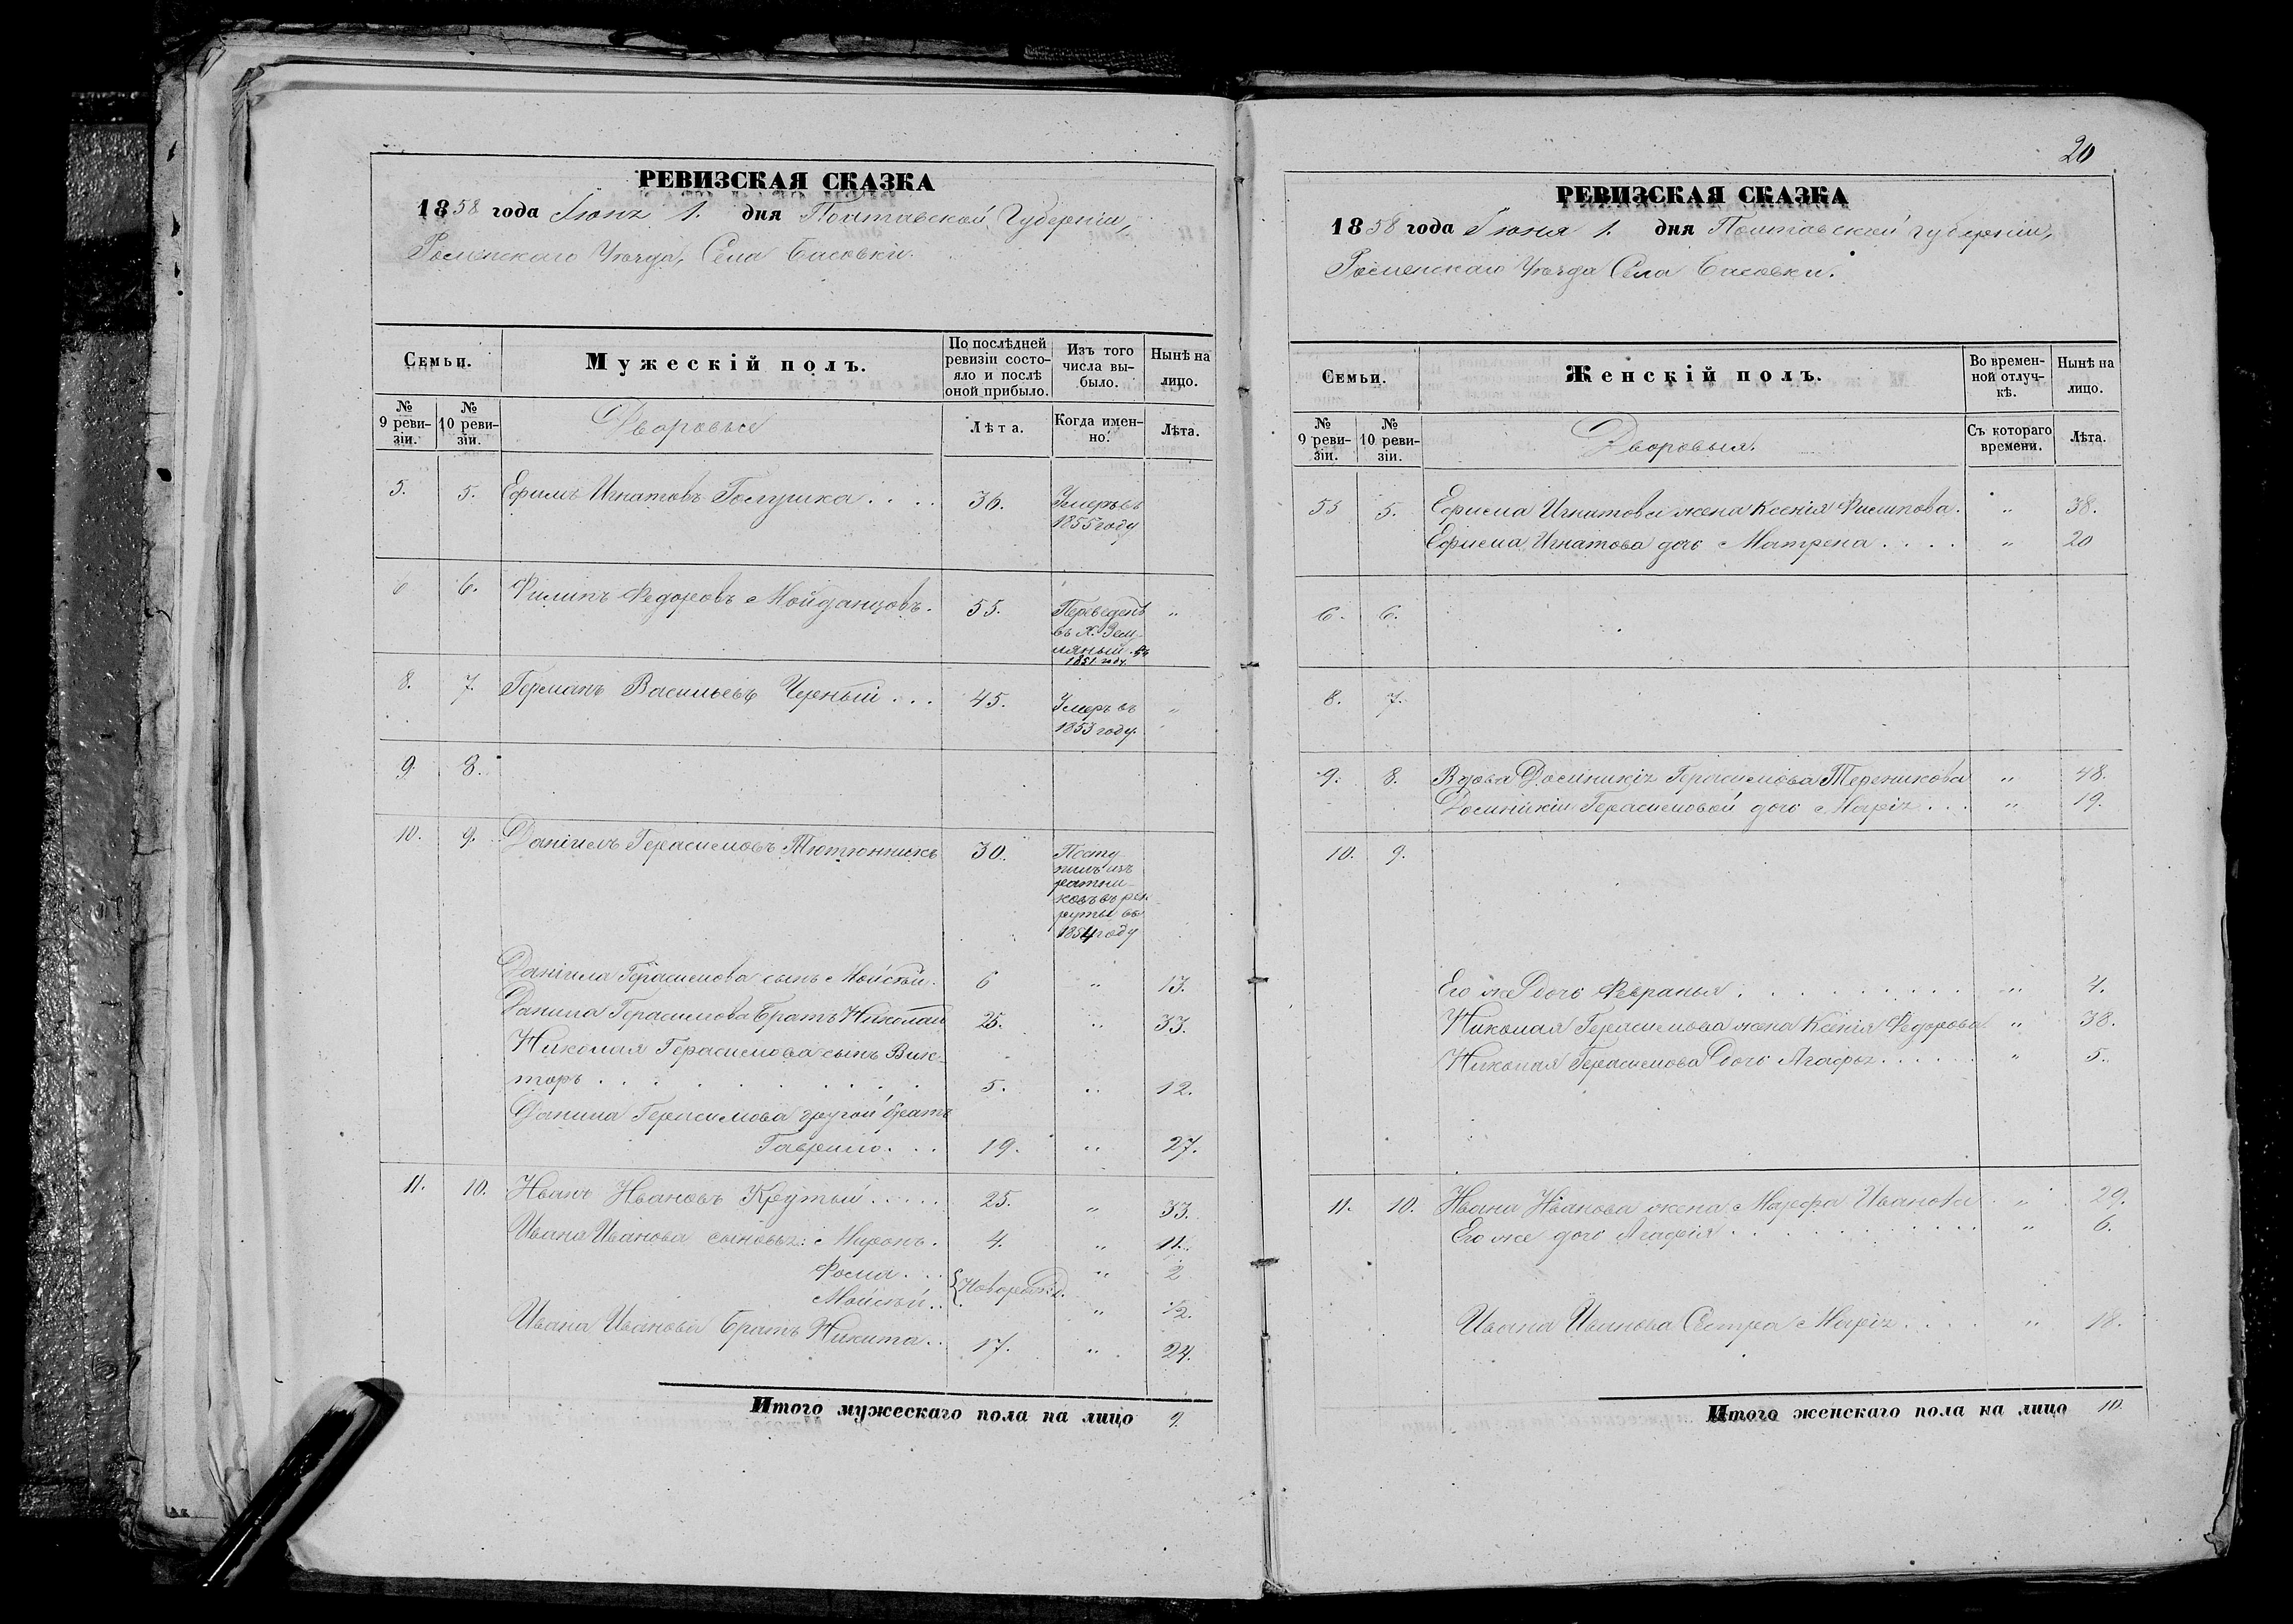 РЕВИЗСКАЯ СКАЗКА
1858 года Іюня 1. дня Полтавской Губерніи,
Роменскаго Уѣзда, Села Басовки.
Семьи.
Мужескій полъ.
По послѣдней ревизіи состояло и послѣ оной прибыло.
Изъ того числа выбыло.
Нынѣ на лицо.
№ 9 ревизіи.
№ 10 ревизіи.
Дворовые
Лѣта.
Когда именно.
Лѣта.
5. 5. Ефимъ Игнатовъ Галушка.... 36. Умеръ въ
1855 году
6 6. Филипъ Федоровъ Мойданцовъ. 55. Переведенъ „
въ Х. Зем-
ляный въ
1851 году.
8. 7. Германъ Васильевъ Черный... 45. Умеръ въ „
1853 году.
9 8.
10. 9. Даніилъ Герасимовъ Тютюнникъ 30. Посту
пилъ изъ
ратни-
ковъ въ рек
руты въ
1854 году
Даніила Герасимова сынъ Мойсѣй. 6 „ 13.
Данила Герасимова братъ Николай 25. „ 33.
Николая Герасимова сынъ Вик-
торъ.......... 5. „ 12.
Данила Герасимова другой братъ
Гаврило... 19. „ 27.
11. 10. Иванъ Ивановъ Крутый..... 25. „ 33.
Ивана Иванова сыновья: Миронъ. 4. „ 11.
Фома... „ 2
Мойсѣй.. {Новорожд. „ ½.
Ивана Иванова братъ Никита.. 17. „ 24.
Итого мужескаго пола на лицо 9.
20
РЕВИЗСКАЯ СКАЗКА
1858 года Іюня 1. дня Полтавской губерніи,
Роменскаго Уѣзда Села Басовки.
Семьи.
Женскій полъ.
Во временной отлучкѣ.
Нынѣ на лицо.
№ 9 ревизіи.
№ 10 ревизіи.
Дворовыя.
Съ котораго времени.
Лѣта.
55 5. Ефима Игнатова жена Ксенія Филипова. „ 38.
Ефима Игнатова дочь Матрена.... „ 20
6. 6.
8. 7.
9. 8. Вдова Домникія Герасимова „ 48.
Домникіи Герасимовой дочь Марія... „ 19.
10. 9.
Его же дочь Февранья......... „ 4.
Николая Герасимова жена Ксенія Федорова „ 38.
Николая Герасимова дочь Агафья...... „ 5.
11. 10. Ивана Иванова жена Марфа Иванова „ 29.
Его же дочь Агафія.......... „ 6.
Ивана Иванова Сестра Марія.... „ 18.
Итого женскаго пола на лицо 10.